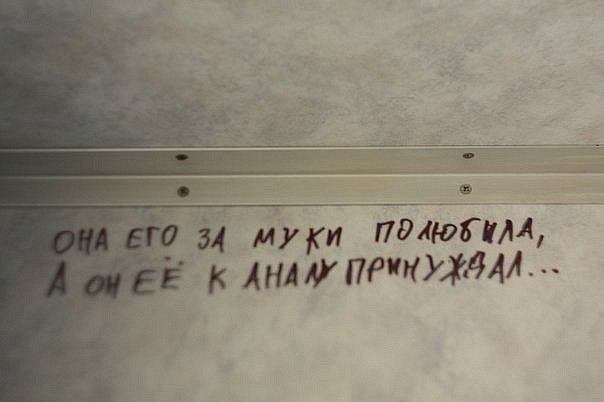 ОНА ЕГО ЗА МУКИ ПОЛЮБИЛА,
А ОН ЕЁ К АНАЛУ ПРИНУЖДАЛ...